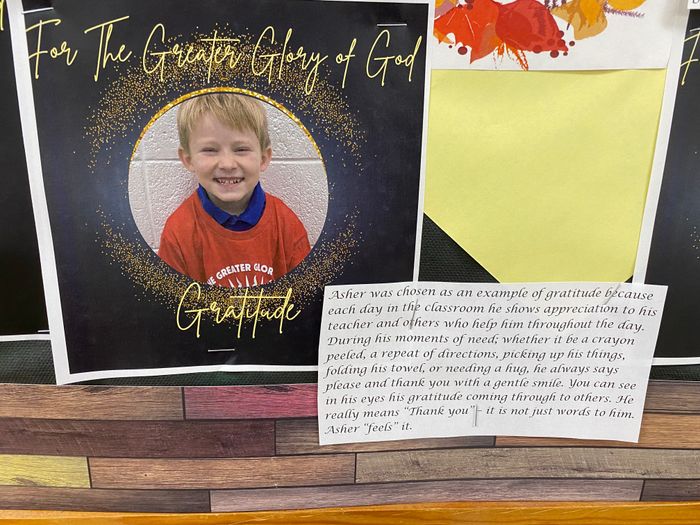 For The Greater Glory of God
THE GREATER GLOR
Gratitude
Asher was chosen as an example of gratitude because
each day in the classroom he shows appreciation to his
teacher and others who help him throughout the day.
During his moments of need; whether it be a crayon
peeled, a repeat of directions, picking up his things,
folding his towel, or needing a hug, he always says
please and thank you with a gentle smile. You can see
in his eyes his gratitude coming through to others. He
really means "Thank you" - it is not just words to him.
Asher "feels" it.